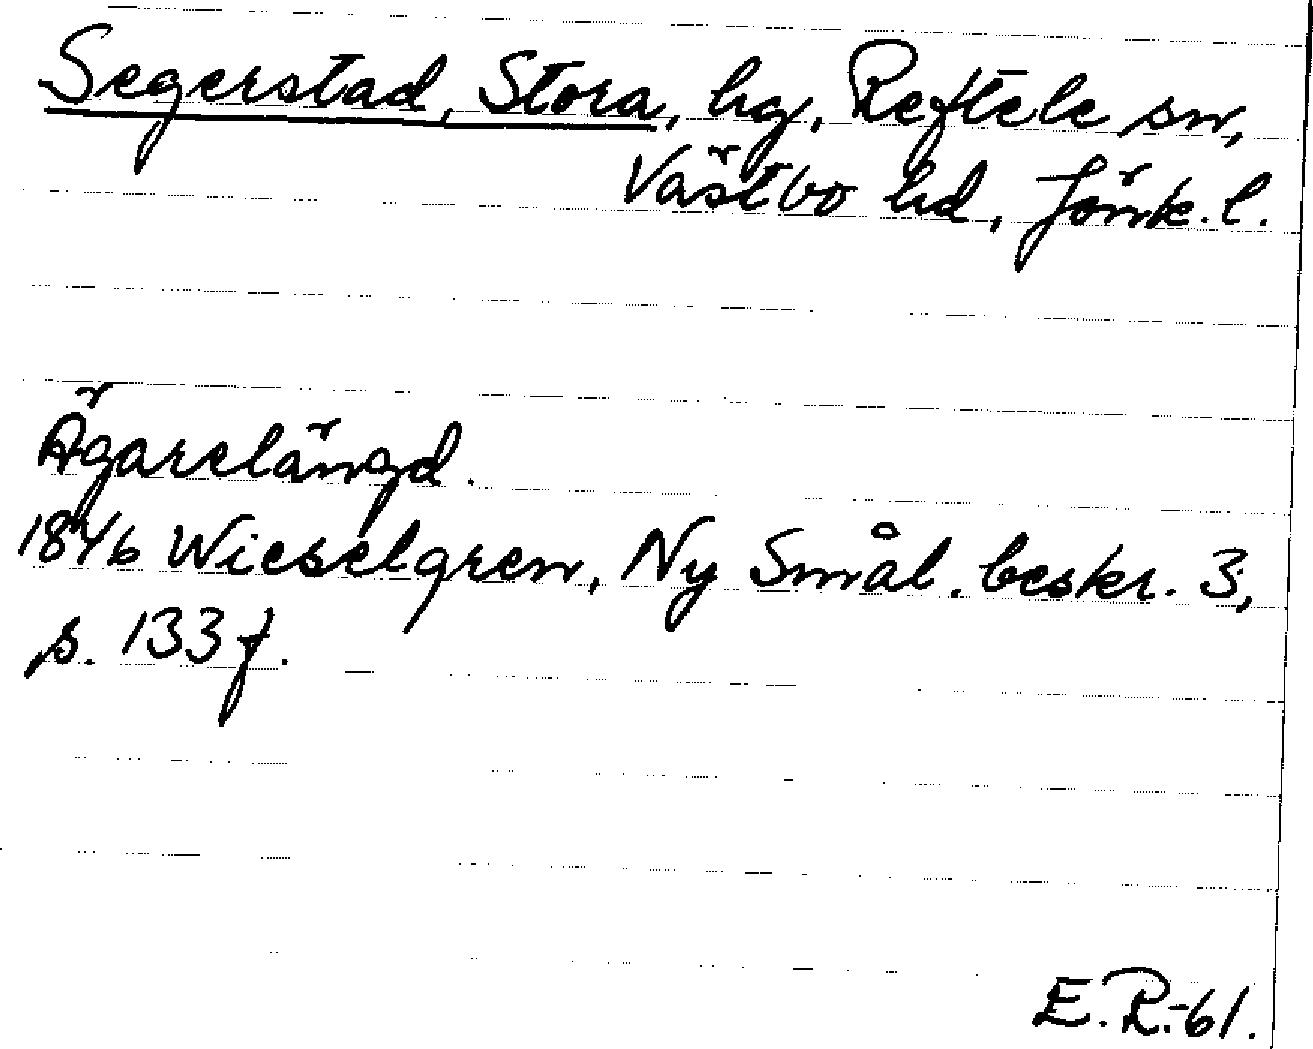 Segerstad, Stora, hg, Reftele sn,
Västbo hd, Jönk. l.
Ägarelängd.
1846 Wieselgren, Ny Smål. beskr. 3,
s. 133 f.
E.R.-61.